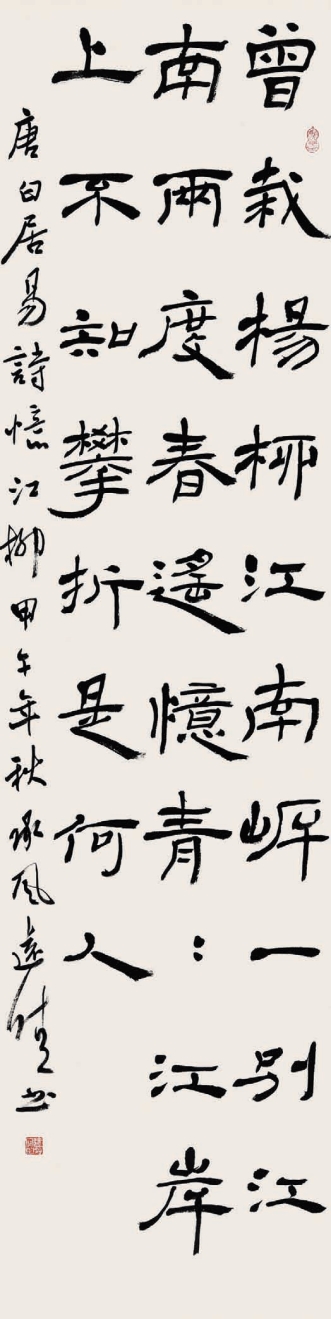 曾栽楊柳江南岸一別江
南兩度春遙憶青：江岸
上不知攀折是何人
唐白居易詩憶江柳甲午年秋承風遠書